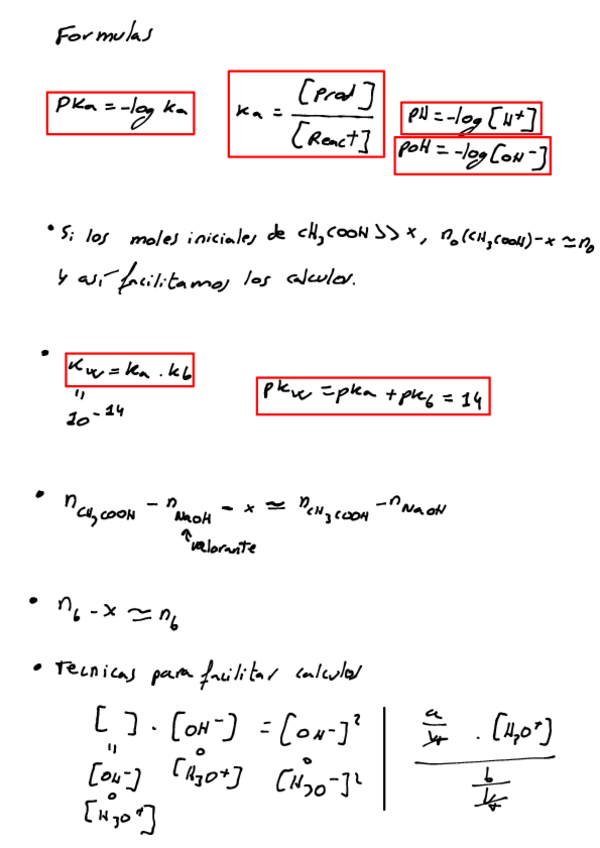 Formulas
PKa = -log Ka
Ka = [Prod] / [React]
PH = -log [H+]
POH = -log [OH-]
• Si los moles iniciales de CH3COOH >> x, n0(CH3COOH) - x ≃ n0
y así facilitamos los calculos.
• Kw = Ka . Kb
"
10^-14
PKw = pKa + pKb = 14
• nCH3COOH - nNaOH - x ≃ nCH3COOH - nNaOH
↑valorante
• nb - x ≃ nb
• Tecnicas para facilitar calculos
[ ] . [OH-] = [OH-]²
" o o
[OH-] [H3O+] [H3O-]²
o
[H3O+]
a/Vt . [H3O+]
b/Vt